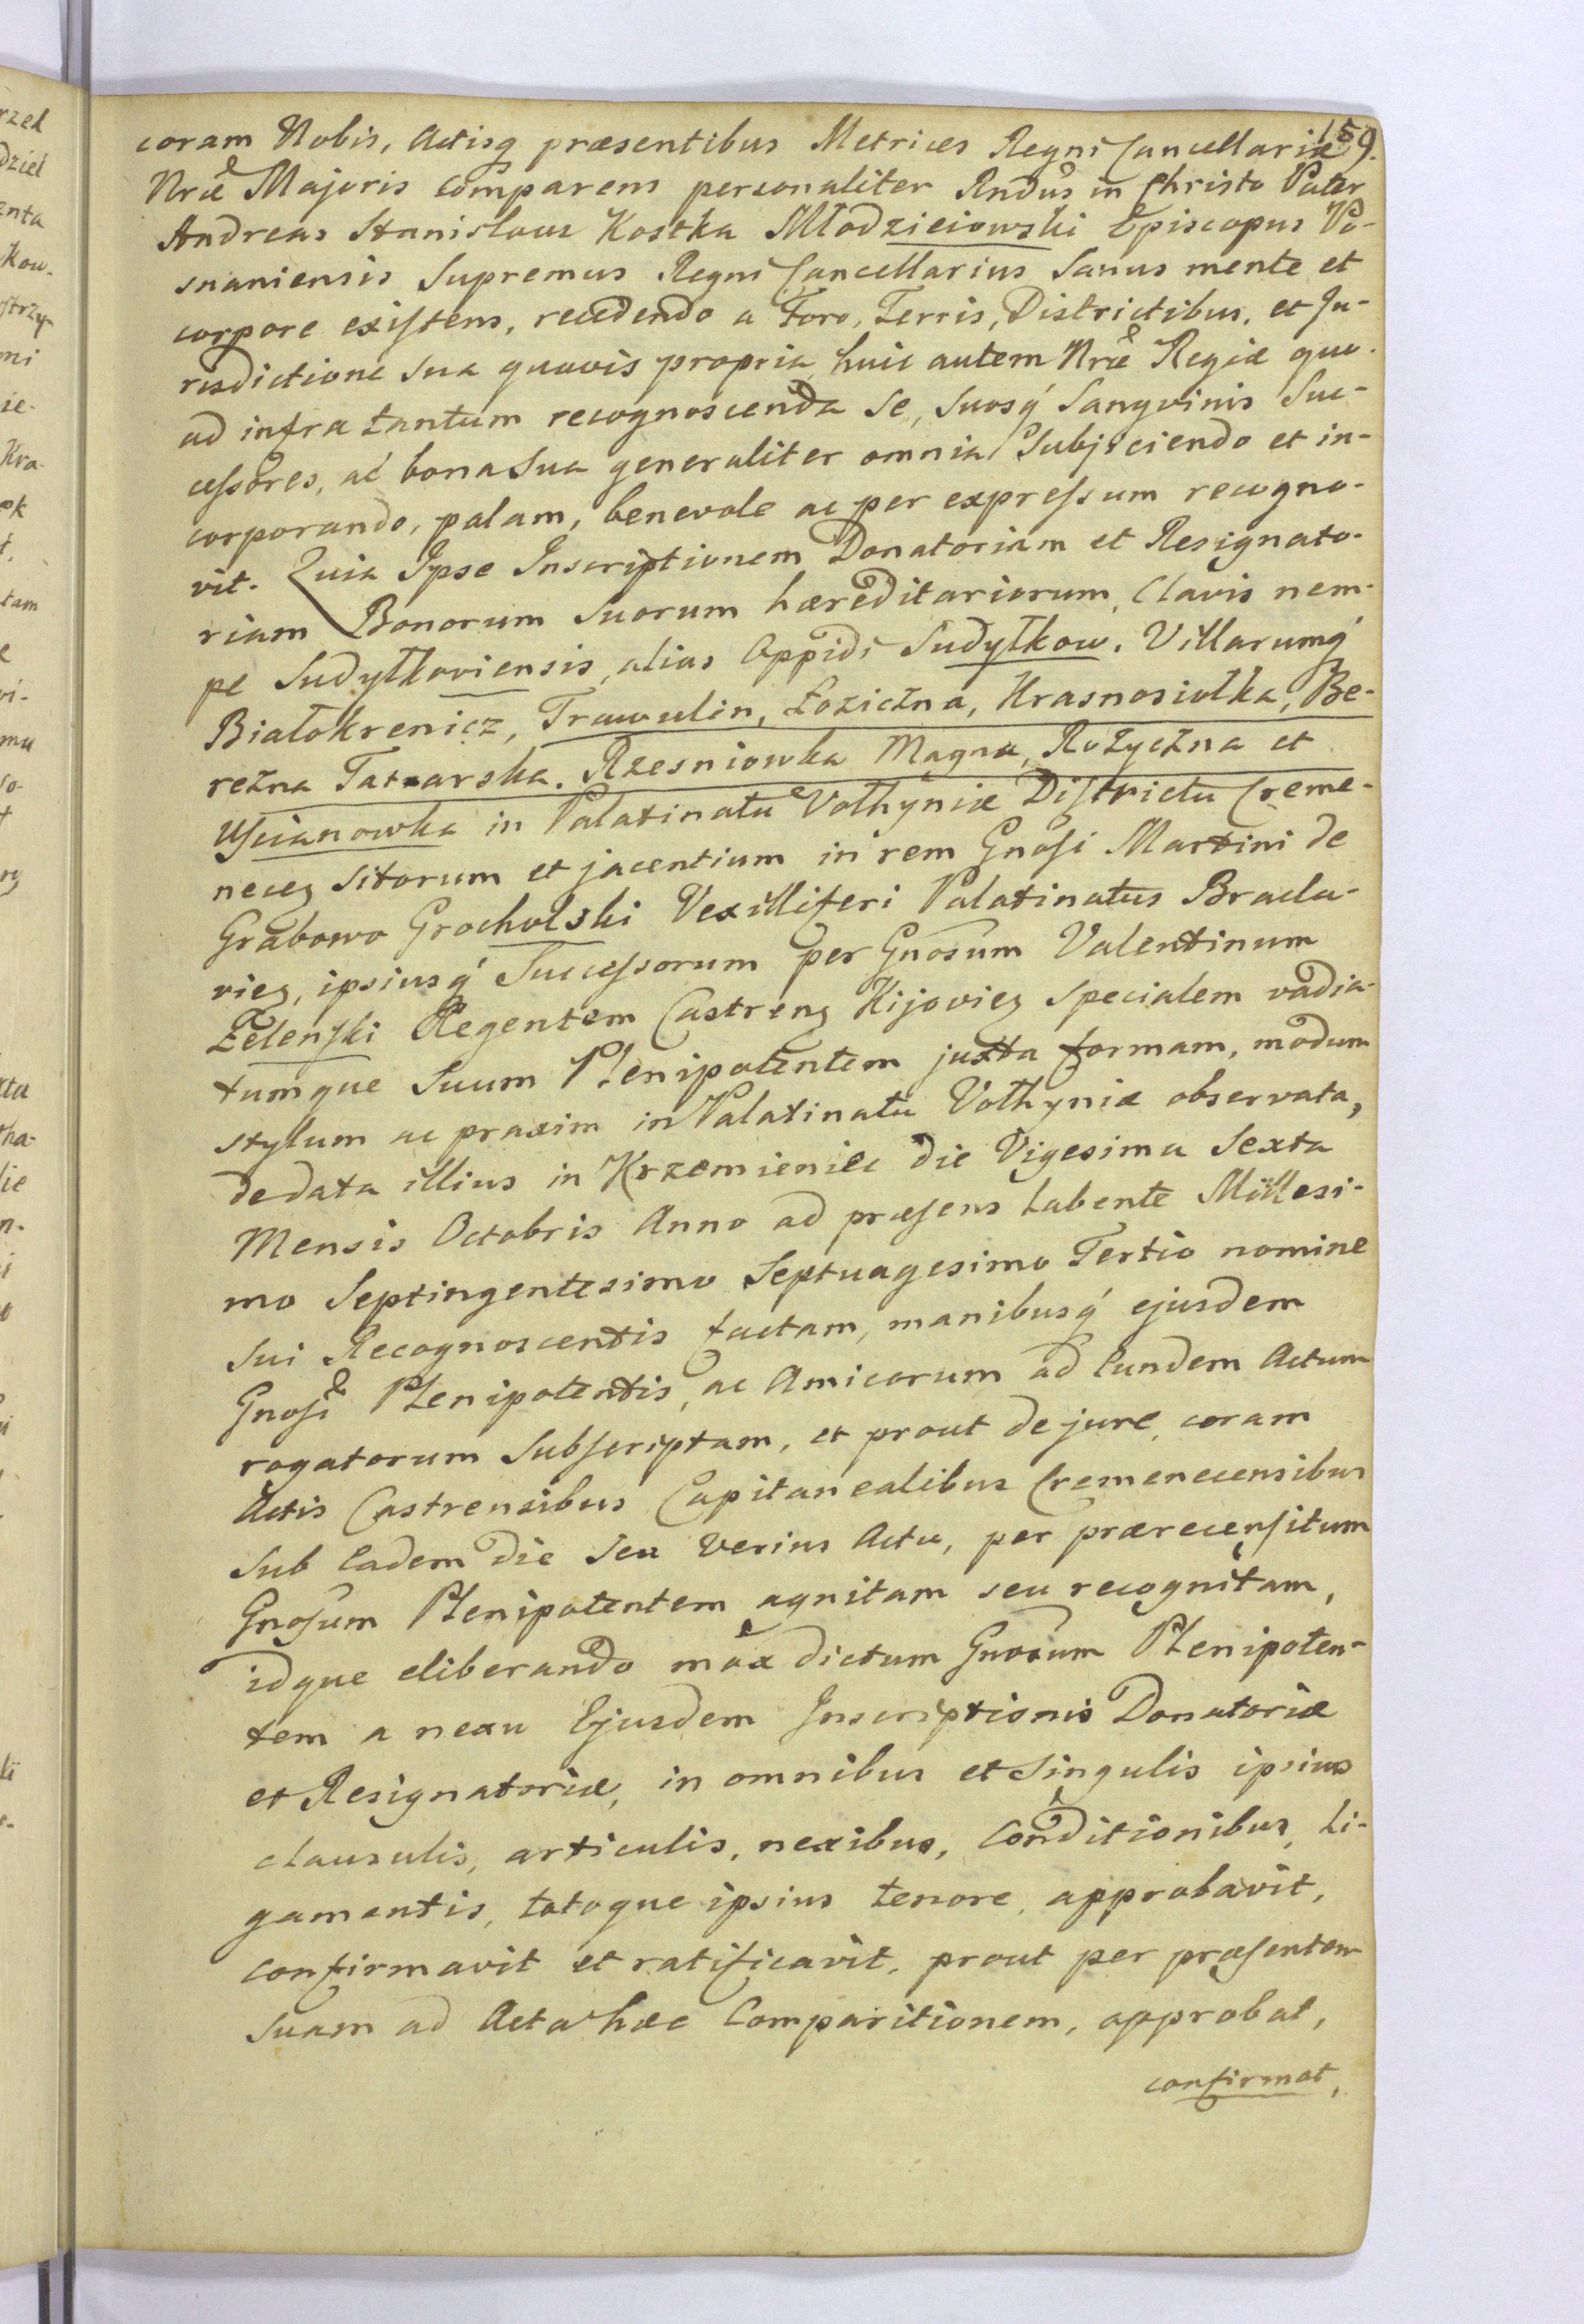 159.
coram Nobis, Actisq́ præsentibus Metrices Regni Cancellariæ
Nræ Majoris comparens personaliter Rndus in Christo Pater
Andreas Stanislaus Kostka Młodzieiowski Episcopus Po-
snaniensis Supremus Regni Cancellarius Sanus mente et
corpore existens, recedendo a Foro, Terris, Districtibus, et Ju-
risdictione sua quavis propria, huic autem Nræ Regiæ quo-
ad infra tantum recognoscenda se, suosq́ Sangvinis Suc-
cessores, ac bona sua generaliter omnia Subjiciendo et in-
corporando, palam, benevole ac per expressum recogno-
vit. Quia Ipse Inscriptionem Donatoriam et Resignato-
riam Bonorum Suorum hæreditariorum, Clavis nem-
pe Sudyłkoviensis, alias Oppidi Sudyłkow, Villarumq́
Białokrenicz, Trawulin, Łoziczna, Krasnosiołka, Be-
rezna Tatarska, Rzesniowka Magna, Rożyczna et
Uscianowka in Palatinatu Volhyniæ Districtu Creme-
necen sitorum et jacentium in rem Gnosi Martini de
Grabowo Grocholski Vexilliferi Palatinatus Bracla-
vien, ipsiusq́ Successorum per Gnosum Valentinum
Zelenski Regentem Castren Kijovien specialem vadia-
tumque Suum Plenipotentem juxta formam, modum
stylum ac praxim in Palatinatu Volhyniæ observata,
de data illius in Krzemieniec die Vigesima Sexta
Mensis Octobris Anno ad præsens labente Millesi-
mo Septingentesimo Septuagesimo Tertio nomine
Sui Recognoscentis factam, manibusq́ ejusdem
Gnosi Plenipotentis, ac Amicorum ad Eundem Actum
rogatorum Subscriptam, et prout de jure, coram
Actis Castrensibus Capitanealibus Cremenecensibus
Sub Eadem die Seu verius Actu, per prærecensitum
Gnosum Plenipotentem agnitam seu recognitam,
idque eliberando mox dictum Gnosum Plenipoten-
tem a nexu Ejusdem Inscriptionis Donatoriæ
et Resignatoriæ, in omnibus et Singulis ipsius
clausulis, articulis, nexibus, Conditionibus, Li-
gamentis, totoque ipsius tenore, approbavit,
confirmavit et ratificavit, prout per præsentem
Suam ad Acta hæc Comparitionem, approbat,
confirmat,